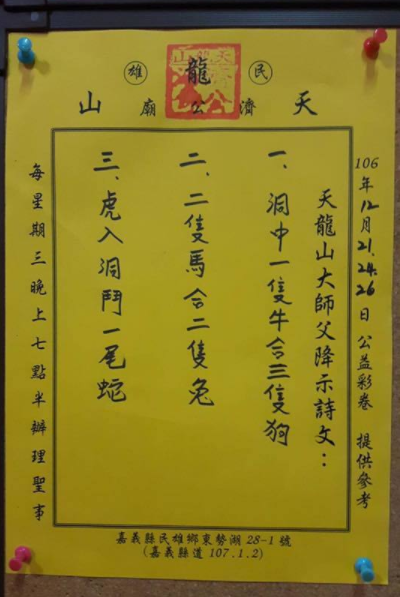 民龍雄
天濟公廟山
106年12月21.24.26日公益彩卷 提供參考
天龍山大師父降示詩文：
一、洞中一隻牛合三隻狗
二、二隻馬合二隻兔
三、虎入洞鬥一尾蛇
每星期三晚上七點半辦理聖事
嘉義縣民雄鄉東勢湖28-1號
(嘉義縣道107.1.2)